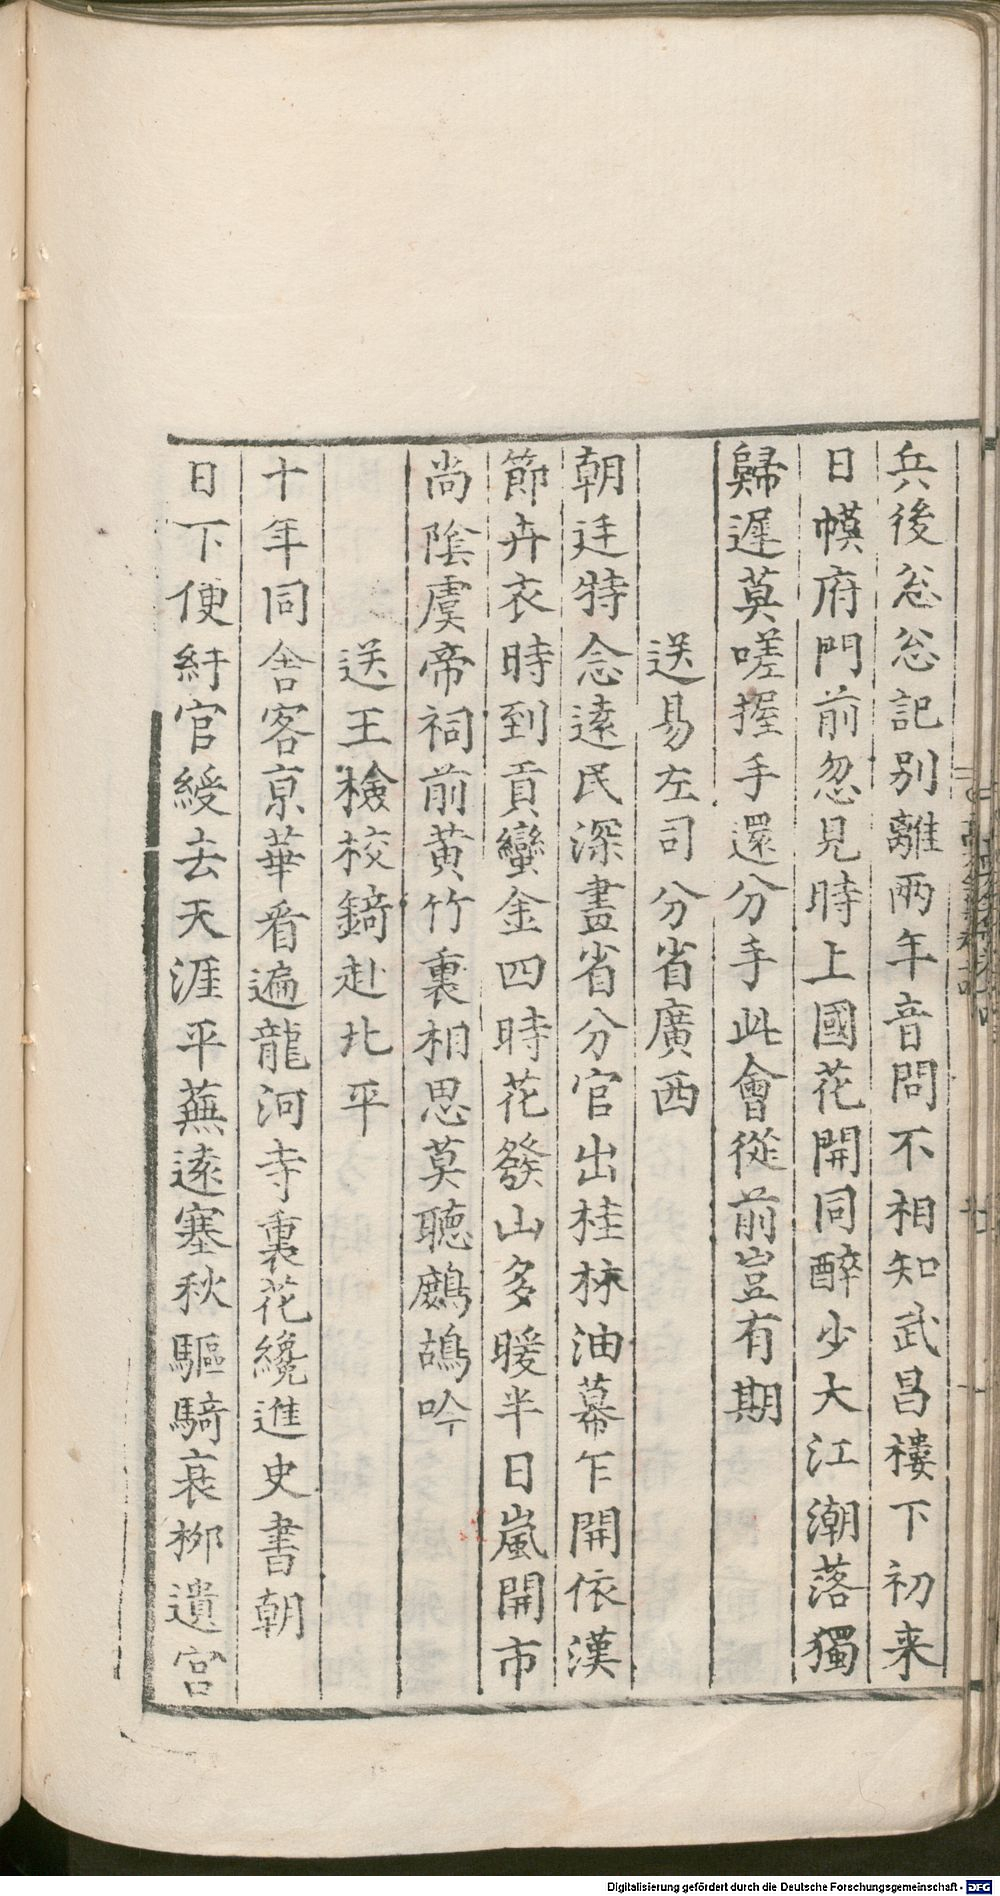 兵後忩忩記別離兩年音問不相知武昌樓下初来
日幙府門前忽見時上國花開同醉少大江潮落獨
歸遲莫嗟握手還分手此會從前豈有期
送易左司分省廣西
朝廷特念遠民深畫省分官出桂林油幕乍開依漢
節卉衣時到貢蠻金四時花發山多暖半日嵐開市
尚陰虞帝祠前黄竹裏相思莫聽鷓鴣吟
送王檢校錡赴北平
十年同舍客京華看遍龍河寺裏花纔進史書朝
日下便紆官綬去天涯平蕪遠塞秋驅騎衰柳遺宮
Digitalisierung gefördert durch die Deutsche Forschungsgemeinschaft - DFG